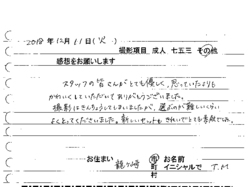 2018年 12月 11日(火)
撮影項目 成人 七五三 その他
感想をお願いします
スタッフの皆さんがとても優しく、思っていたよりも
かわいくしていただいてありがとうございました。
撮影はきんちょうしてしまいましたが、選ぶのが難しいくらい
よくとってくださいました。新しいセットもきれいでとても素敵でした。
お住まい 龍ヶ崎 市 町 村 お名前 イニシャルで T.M